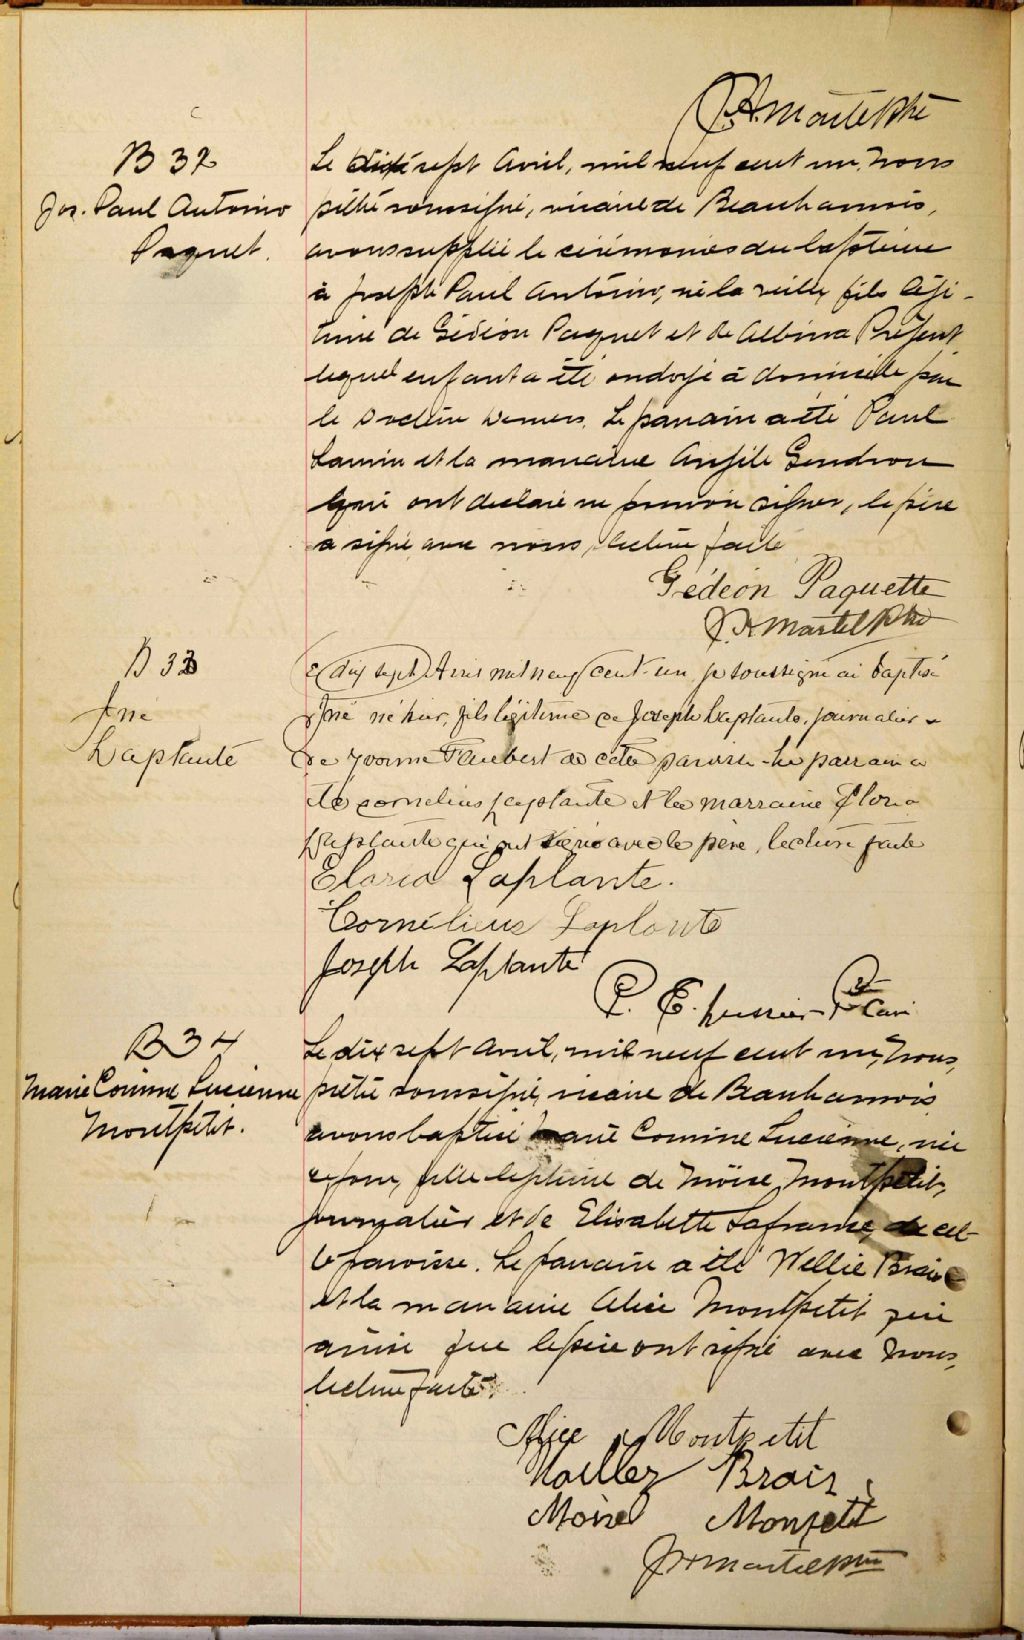 B 32
Jos. Paul Antonio
Paquet.
Le dix sept Avril, mil neuf cent un, nous
prêtre soussigné, vicaire de Beauharnois,
avons supplée le cérémonies du baptême
à Joseph Paul Antonio, né la veille, fils légi-
time de Gédéon Paquet et de Albina
lequel enfant a été ondoyé à domicile par
le Docteur Demers. Le parrain a été Paul
et la marraine Gendron
qui ont déclaré ne pouvoir signer, le père
a signé avec nous, lecture faite
Gédéon Paquette
J. A Martel Ptre
B 33
Jné
Laplante
Le dix sept Avril mil neuf cent un je soussigné ai baptisé
Jné né hier, fils légitime de Joseph Laplante, journalier
de Yvonne de cette paroisse. Le parrain a
été Cornelius Laplante et la marraine
Laplante qui ont signé avec le père, lecture faite
Laplante.
Cornélieus Laplante
Joseph Laplante
P. E. Lussier Ptre Curé
B 34
Marie Corinne Lucienne
Montpetit.
Le dix sept Avril, mil neuf cent un, nous,
prêtre soussigné, vicaire de Beauharnois
avons baptisé Marie Corinne Lucienne, née
ce jour, fille légitime de Moïse Montpetit,
journalier et de Elisabette Lafrance, de cet-
te paroisse. Le parrain a été Wellie
et la marraine Alice Montpetit qui
ainsi que le père ont signé avec nous,
lecture faite.
Alice Montpetit
Moise Monpetit
J A Martel Ptre